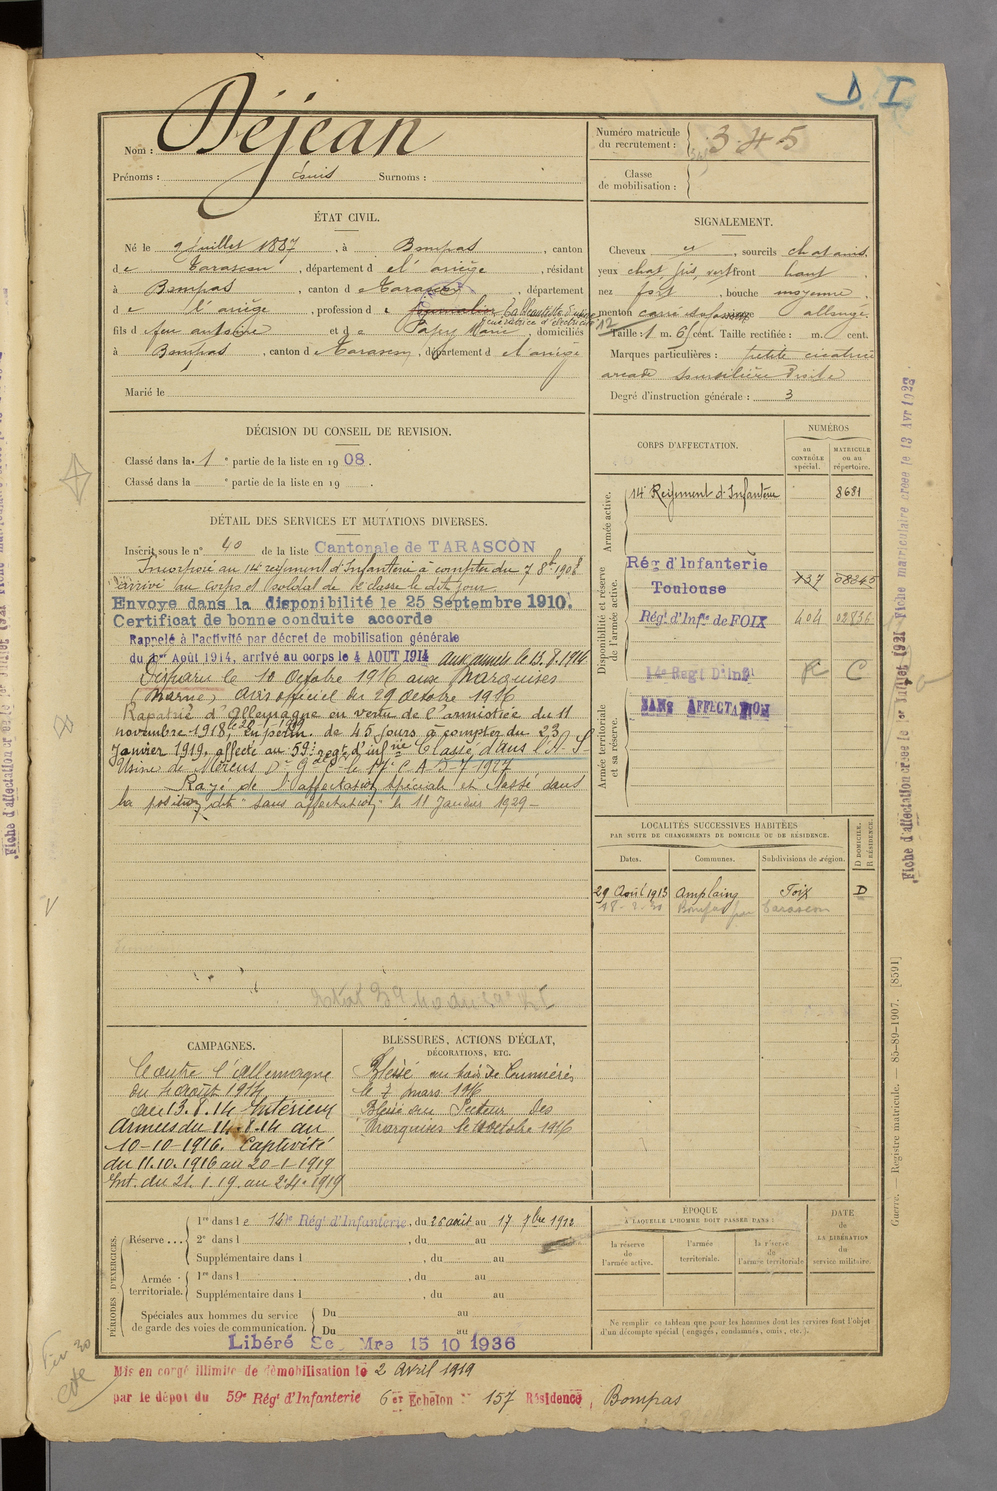 D I
Nom : Déjean
Prénoms : Louis Surnoms :
Numéro matricule du recrutement : 345
Classe de mobilisation :
ÉTAT CIVIL.
Né le 9 juillet 1887, à Bompas, canton
de Tarascon, département d el'ariège, résidant
à Bompas, canton de Tarascon, département
de l'ariège, profession d e journalier
fils d feu antoine et de Papy Marie, domiciliés
à Bompas, canton d Tarascon, département d el'ariège
Marié le
SIGNALEMENT.
Cheveux et, sourcils chatains.
yeux chat, gris, vert front haut
nez fort, bouche moyenne
menton carré visage allongé.
Taille : 1 m. 61 cent. Taille rectifiée : m. cent.
Marques particulières : petite cicatrice
arcade sourcilière droite
Degré d'instruction générale : 3
DÉCISION DU CONSEIL DE REVISION.
Classé dans la 1e partie de la liste en 1908.
Classé dans la e partie de la liste en 19 .
DÉTAIL DES SERVICES ET MUTATIONS DIVERSES.
Inscrit sous le n° 40 de la liste Cantonale de TARASCON
Incorporé au 14e régiment d'Infanterie à compter du 7 8bre 1908
arrivé au corps et soldat de 2e classe le dit jour
Envoyé dans la disponibilité le 25 Septembre 1910.
Certificat de bonne conduite accordé
Rappelé à l'activité par décret de mobilisation générale
du 1er Août 1914, arrivé au corps le 4 AOUT 1914 aux armées le 13.8.1914
Disparu le 10 Octobre 1916 aux Marquises
(Marne) avis officiel du 29 Octobre 1916
Rapatrié d'Allemagne en vertu de l'armistice du 11
novembre 1918, le 20.1.1919 en perm. de 45 jours à compter du 23
janvier 1919, affecté au 59e regt d'infrie Classé dans l'A.S
Usine de Mercus
Rayé de l'affectation spéciale et classé dans
la position dite "sans affectation" le 11 Janvier 1929
CORPS D'AFFECTATION.
NUMÉROS
au CONTRÔLE spécial.
MATRICULE ou au répertoire.
Armée active.
14e Régiment d'Infanterie 8681
Disponibilité et réserve de l'armée active.
Rég d'Infanterie Toulouse 137 08345
Régt d'Infie de FOIX 404 02836
14e Regt D'Inft R C
Armée territoriale et sa réserve.
SANS AFFECTATION
LOCALITÉS SUCCESSIVES HABITÉES
PAR SUITE DE CHANGEMENTS DE DOMICILE OU DE RÉSIDENCE.
Dates. Communes. Subdivisions de région. D DOMICILE. R RÉSIDENCE.
29 Août 1913 Amplaing Foix D
18-2-30 Bompas par Tarascon
CAMPAGNES.
Contre l'Allemagne
du 4 août 1914
au 13.8.14 Intérieur
Armées du 14.8.14 au
10-10-1916. Captivité
du 11.10.1916 au 20-1-1919
Int. du 21.1.19 au 2.4.1919
BLESSURES, ACTIONS D'ÉCLAT,
DÉCORATIONS, ETC.
Blessé au bois de Cumières
le 7 mars 1916
Blessé au Secteur des
Marquises le 10 octobre 1916
PÉRIODES D'EXERCICES.
Réserve ... 1re dans le 14e Régt d'Infanterie, du 26 août au 17 7bre 1912
2e dans l , du au
Supplémentaire dans l , du au
Armée territoriale. 1re dans l , du au
Supplémentaire dans l , du au
Spéciales aux hommes du service de garde des voies de communication. Du au
Du au
Libéré Mre 15 10 1936
ÉPOQUE
À LAQUELLE L'HOMME DOIT PASSER DANS :
la réserve de l'armée active.
l'armée territoriale.
la réserve de l'armée territoriale
DATE de LA LIBÉRATION du service militaire.
Ne remplir ce tableau que pour les hommes dont les services font l'objet
d'un décompte spécial (engagés, condamnés, omis, etc.).
Mis en congé illimité de démobilisation le 2 Avril 1919
par le dépot du 59e Régt d'Infanterie 6er Echelon N° 157 Résidence, Bompas
Fiche d'affectation créée le 1er Juillet 1921 Fiche matriculaire créée le 13 Avr 1928
Guerre. — Registre matricule. — 85-89-1907. [8591]